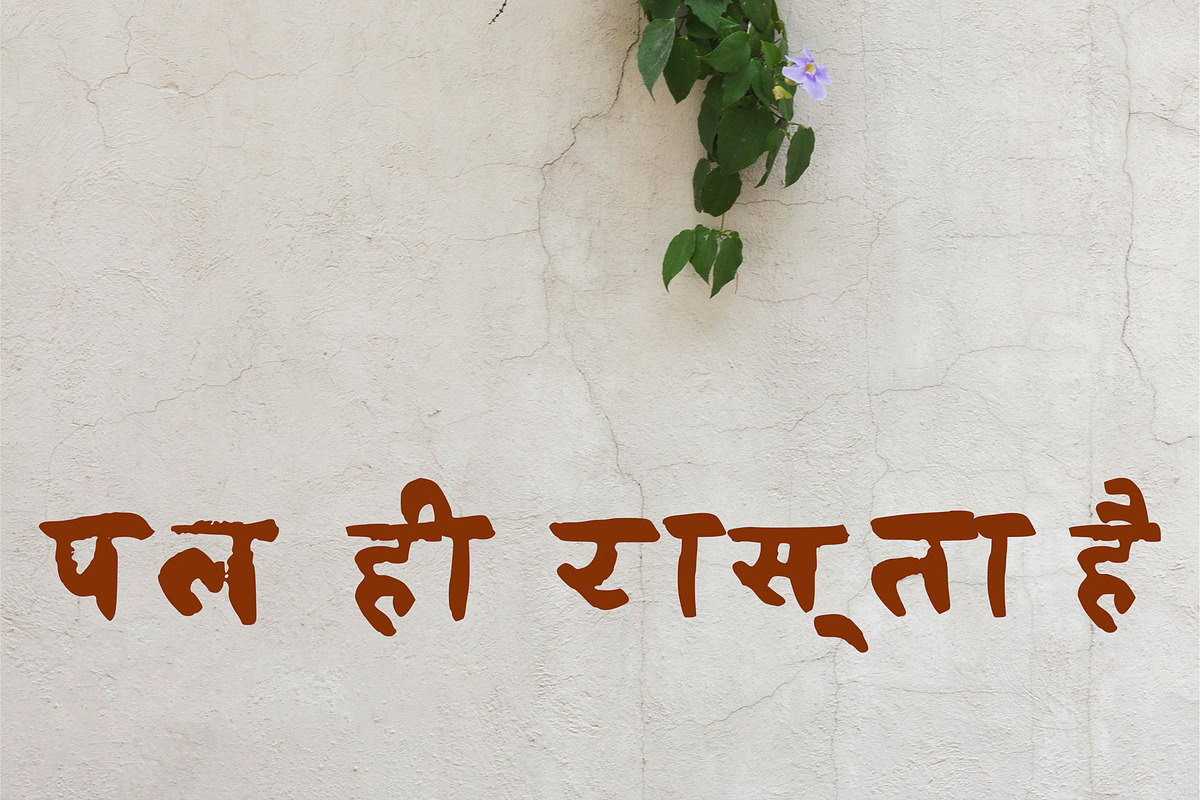 पल ही रास्‌ता है